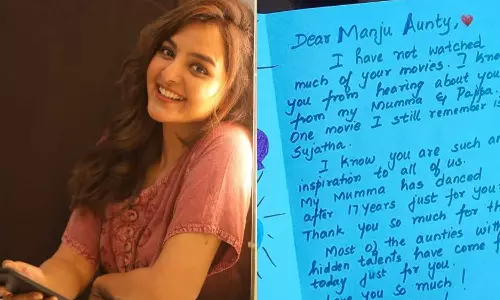 Dear Manju Aunty,
I have not watched
much of your movies. I
you from hearing about you
from my Mumma & Pappa.
One movie I still remember is
Sujatha.
I know you are such an
inspiration to all of us.
My Mumma has danced
after 17 years just for you.
Thank you so much for
Most of the aunties with
hidden talents have come
today just for you.
you so much!